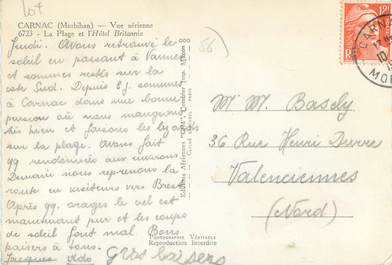 CARNAC (Morbihan) — Vue aérienne
6723 - La Plage et l'Hôtel Britannia
Jeudi. Avons retrouvé le
soleil en passant à Vannes
et sommes restés sur la
côte Sud. Depuis 5 j. sommes
à Carnac dans une bonne
pension où nous mangeons
très bien et faisons les lézards
sur la plage. Avons fait
qq randonnées aux environs.
Demain nous reprenons la
route en visiteurs vers Brest.
Après qq. orages le ciel est
maintenant pur et les coups
de soleil font mal. Bons
baisers à tous.
Jacques
Gros baisers
56
Editions Aériennes "CIM" Combier Imp. Mâcon
PHOTOGRAPHIE VÉRITABLE
Reproduction Interdite
RF
CARNAC
M. Mme Basely
36 Rue Henri Durre
Valenciennes
(Nord)